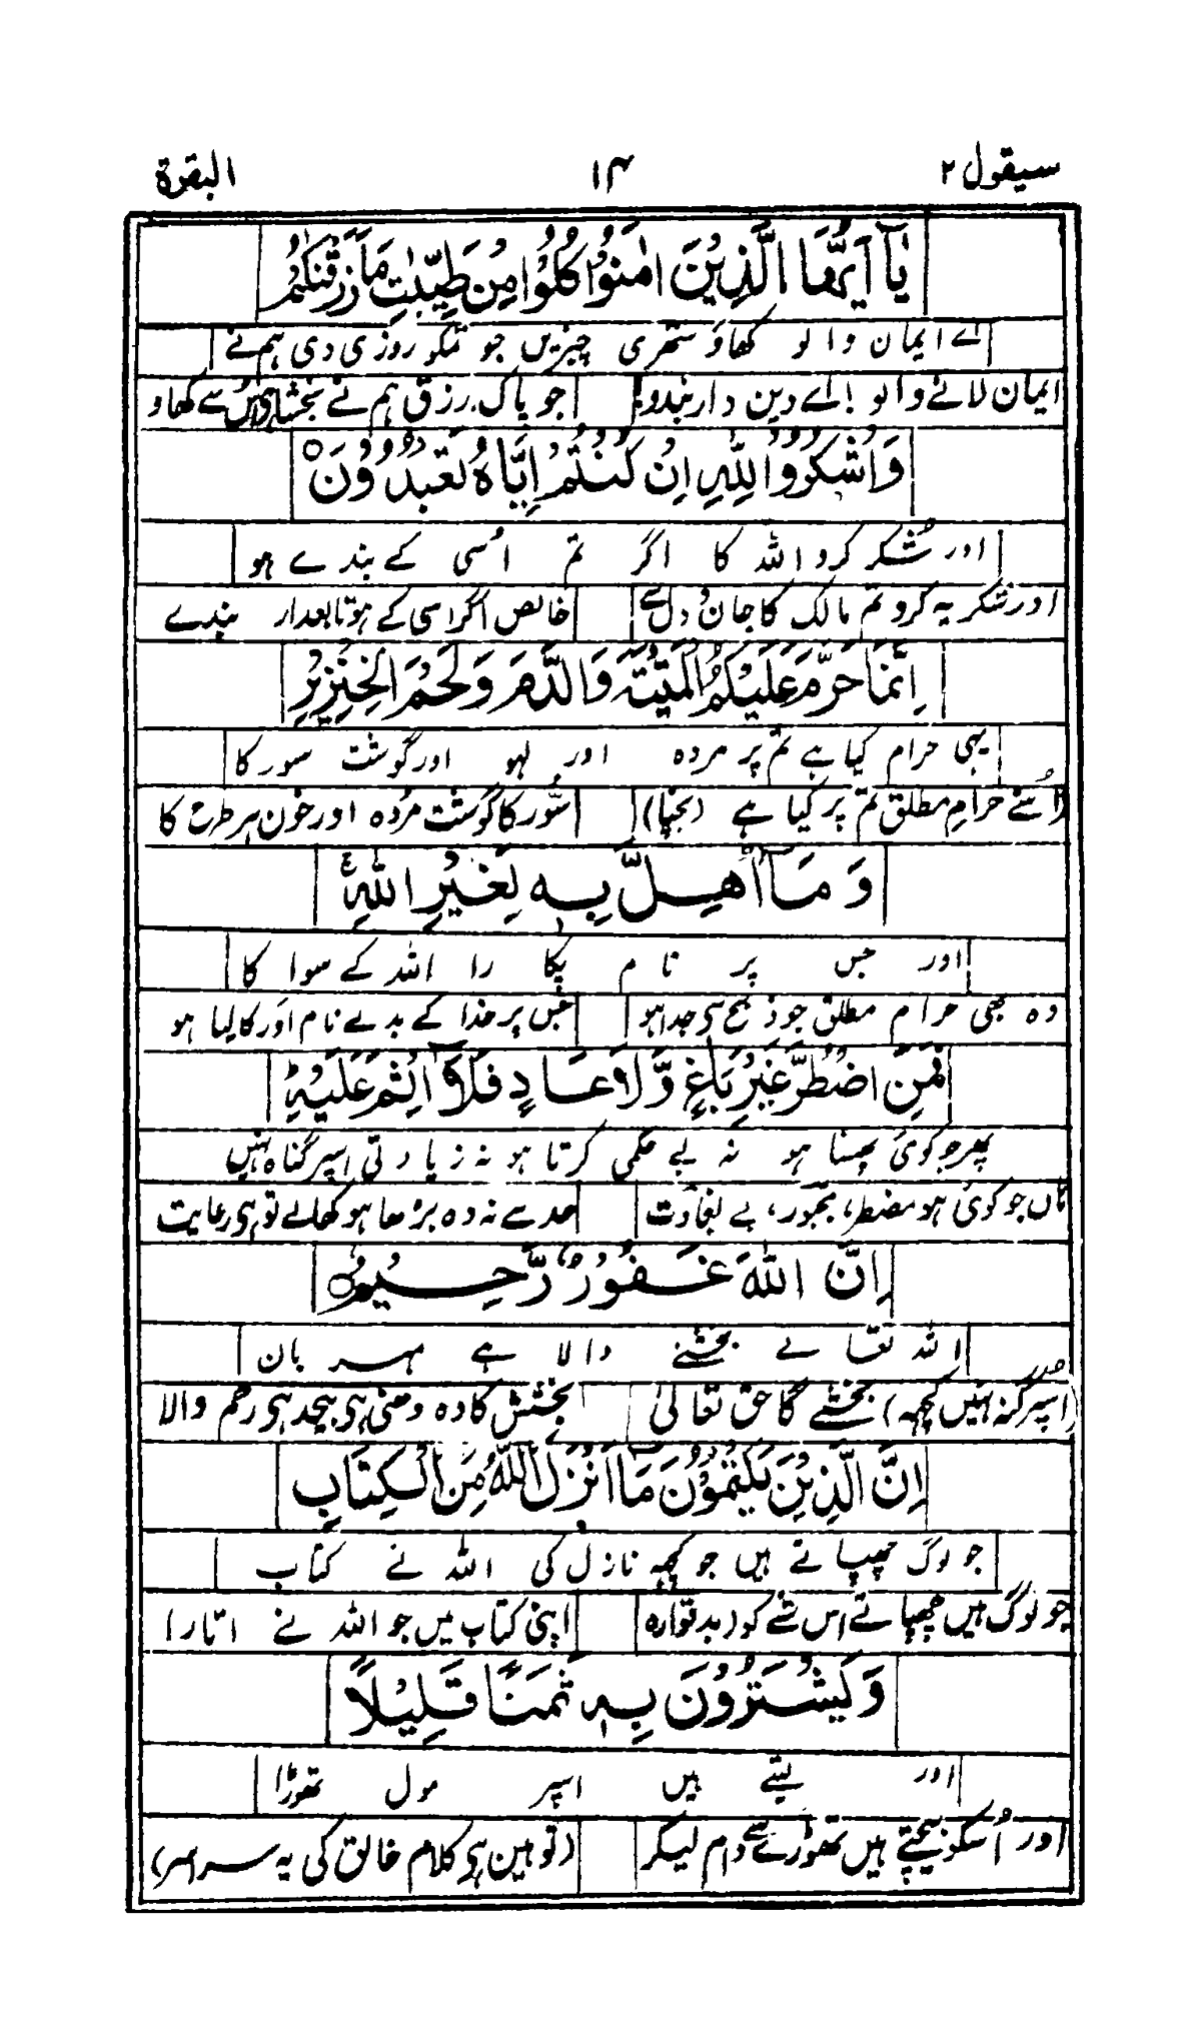 سیقول ۲ ۱۴ البقرة
یٰآ اَیُّهَا الَّذِیْنَ اٰمَنُوْا كُلُوْا مِنْ طَیِّبٰتِ مَا رَزَقْنٰكُمْ
اے ایمان والو کھاؤ ستھری چیزیں جو تمکو روزی دی ہم نے
ایمان لانے والو! اے دین دار بندو! جو پاک رزق ہم نے بخشا ہی اس سے کھاو
وَاشْكُرُوْا لِلّٰهِ اِنْ كُنْتُمْ اِیَّاهُ تَعْبُدُوْنَ ○
اور شکر کرو اللہ کا اگر تم اُسی کے بندے ہو
اور شکریہ کرو تم مالک کا جان و دل سے خالص اگر اسی کے ہو تابعدار بندے
اِنَّمَا حَرَّمَ عَلَیْكُمُ الْمَیْتَةَ وَالدَّمَ وَلَحْمَ الْخِنْزِیْرِ
یہی حرام کیا ہے تم پر مردہ اور لہو اور گوشت سور کا
اُسنے حرامِ مطلق تم پر کیا ہے (بجنا) سُور کا گوشت مُردہ اور خون ہر طرح کا
وَ مَآ اُهِلَّ بِهٖ لِغَیْرِ اللّٰهِ
اور جس پر نام پکارا اللہ کے سوا کا
وہ بھی حرام مطلق جو ذبح ہی جدا ہو جس پر خدا کے بدلے نام اَور کا لیا ہو
فَمَنِ اضْطُرَّ غَیْرَ بَاغٍ وَّلَا عَادٍ فَلَآ اِثْمَ عَلَیْهِ
پھر جو کوئی پھنسا ہو نہ بے حکمی کرتا ہو نہ زیادتی اسپر گناہ نہیں
ہاں جو کوئی ہو مضطر، مجبور، بے بغاوت حد سے نہ وہ بڑھا ہو کھالے تو ہی رعایت
اِنَّ اللّٰهَ غَفُوْرٌ رَّحِیْمٌ ○
اللہ تعالے بخشنے والا ہے مہربان
(اُسپر گنہ نہیں کچھ) بخشے گا حق تعالیٰ بخشش کا وہ دھنی ہی بیحد ہی رحم والا
اِنَّ الَّذِیْنَ یَكْتُمُوْنَ مَآ اَنْزَلَ اللّٰهُ مِنَ الْكِتَابِ
جو لوگ چھپاتے ہیں جو کچھ نازل کی اللہ نے کتاب
جو لوگ ہیں چھپاتے اس شے کو (بدقوارہ اپنی کتاب میں جو اللہ نے اتارا
وَیَشْتَرُوْنَ بِهٖ ثَمَنًا قَلِیْلًا
اور لیتے ہیں اسپر مول تھوڑا
اور اُسکو بیچتے ہیں تھوڑے سے دام لیکر (توہین ہی کلام خالق کی یہ سراسر)